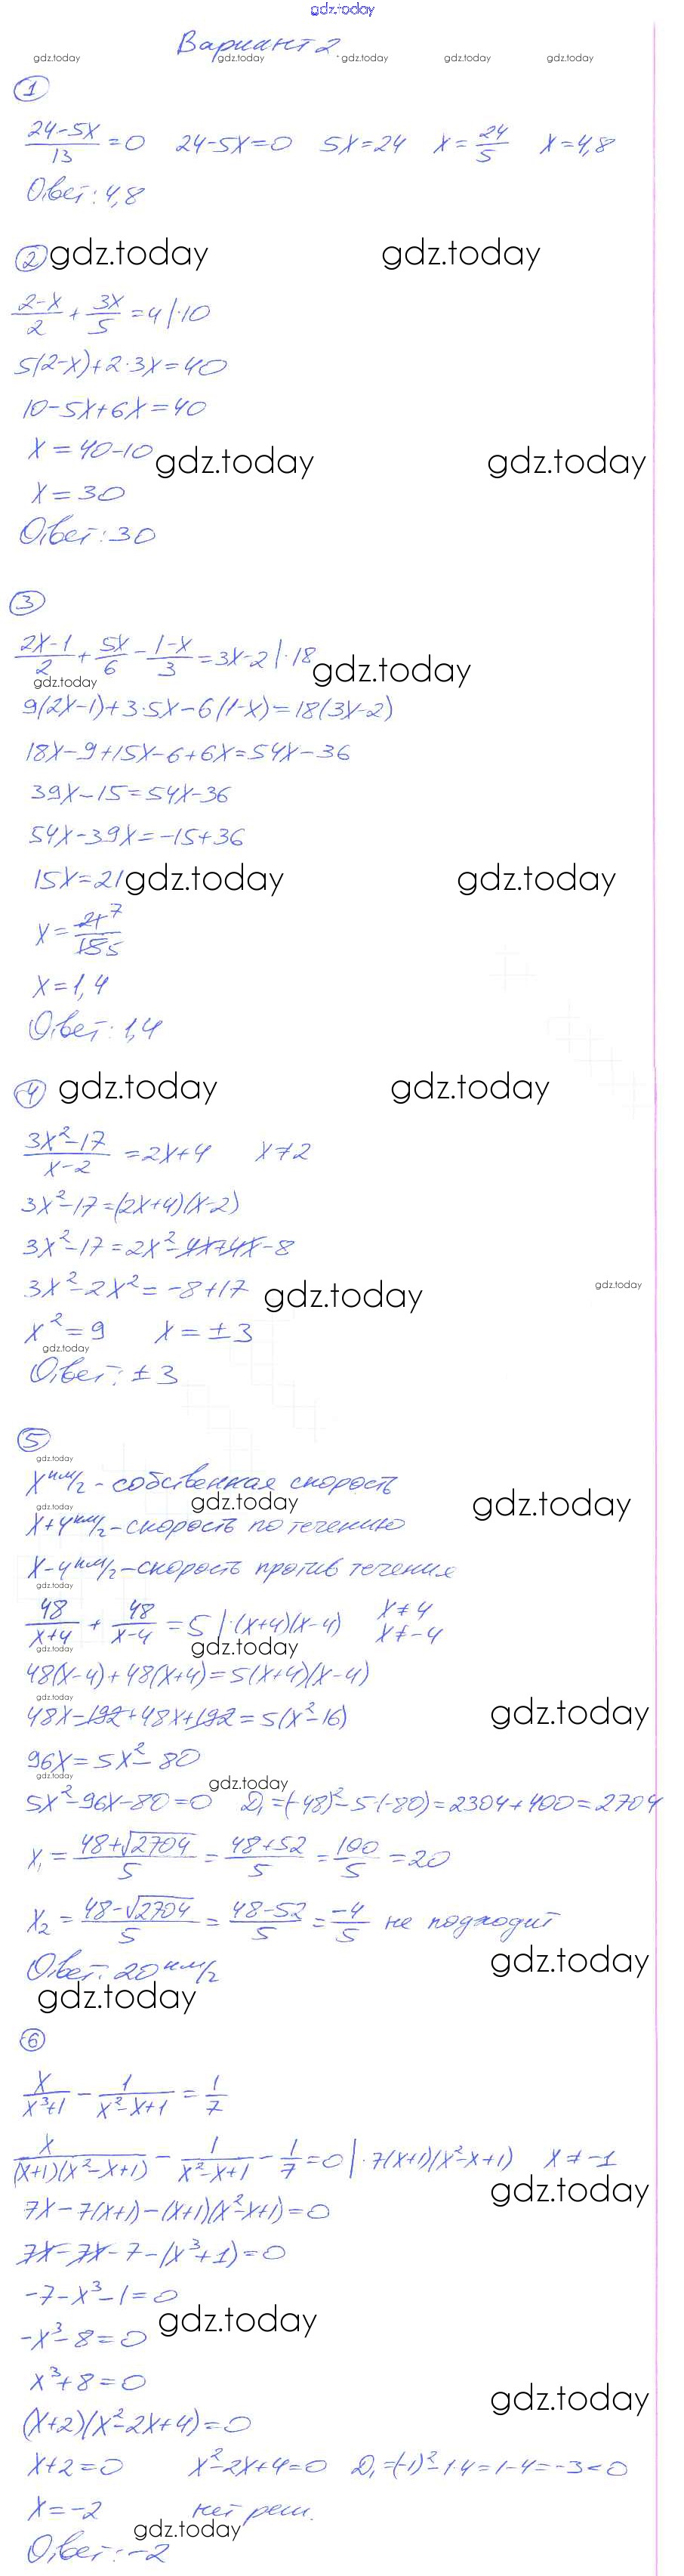 gdz.today
Вариант 2
gdz.today gdz.today gdz.today gdz.today gdz.today
1
(24-5x)/13 = 0 24-5x=0 5x=24 x=24/5 x=4,8
Ответ: 4,8
2 gdz.today gdz.today
(2-x)/2 + 3x/5 = 4 |·10
5(2-x)+2·3x=40
10-5x+6x=40
x=40-10 gdz.today gdz.today
x=30
Ответ: 30
3
(2x-1)/2 + 5x/6 - (1-x)/3 = 3x-2 |·18 gdz.today
gdz.today
9(2x-1)+3·5x-6(1-x)=18(3x-2)
18x-9+15x-6+6x=54x-36
39x-15=54x-36
54x-39x=-15+36
15x=21 gdz.today gdz.today
x=21 7/15 5
x=1,4
Ответ: 1,4
4 gdz.today gdz.today
(3x²-17)/(x-2) = 2x+4 x≠2
3x²-17=(2x+4)(x-2)
3x²-17=2x²-4x+4x-8
3x²-2x²=-8+17 gdz.today gdz.today
x²=9 x=±3
gdz.today
Ответ: ±3
5
gdz.today
x км/г - собственная скорость
gdz.today gdz.today gdz.today
x+4 км/г - скорость по течению
x-4 км/г - скорость против течения
gdz.today
48/(x+4) + 48/(x-4) = 5 |·(x+4)(x-4) x≠4
x≠-4
gdz.today gdz.today
48(x-4)+48(x+4)=5(x+4)(x-4)
gdz.today gdz.today
48x-192+48x+192=5(x²-16)
96x=5x²-80
gdz.today gdz.today
5x²-96x-80=0 D₁=(-48)²-5·(-80)=2304+400=2704
x₁=(48+√2704)/5=(48+52)/5=100/5=20
x₂=(48-√2704)/5=(48-52)/5=-4/5 не подходит
gdz.today
Ответ: 20 км/г
gdz.today
6
x/(x³+1) - 1/(x²-x+1) = 1/7
x/((x+1)(x²-x+1)) - 1/(x²-x+1) - 1/7 = 0 |·7(x+1)(x²-x+1) x≠-1
gdz.today
7x-7(x+1)-(x+1)(x²-x+1)=0
7x-7x-7-(x³+1)=0
-7-x³-1=0
-x³-8=0 gdz.today
x³+8=0
gdz.today
(x+2)(x²-2x+4)=0
x+2=0 x²-2x+4=0 D₁=(-1)²-1·4=1-4=-3<0
x=-2 нет реш.
gdz.today
Ответ: -2